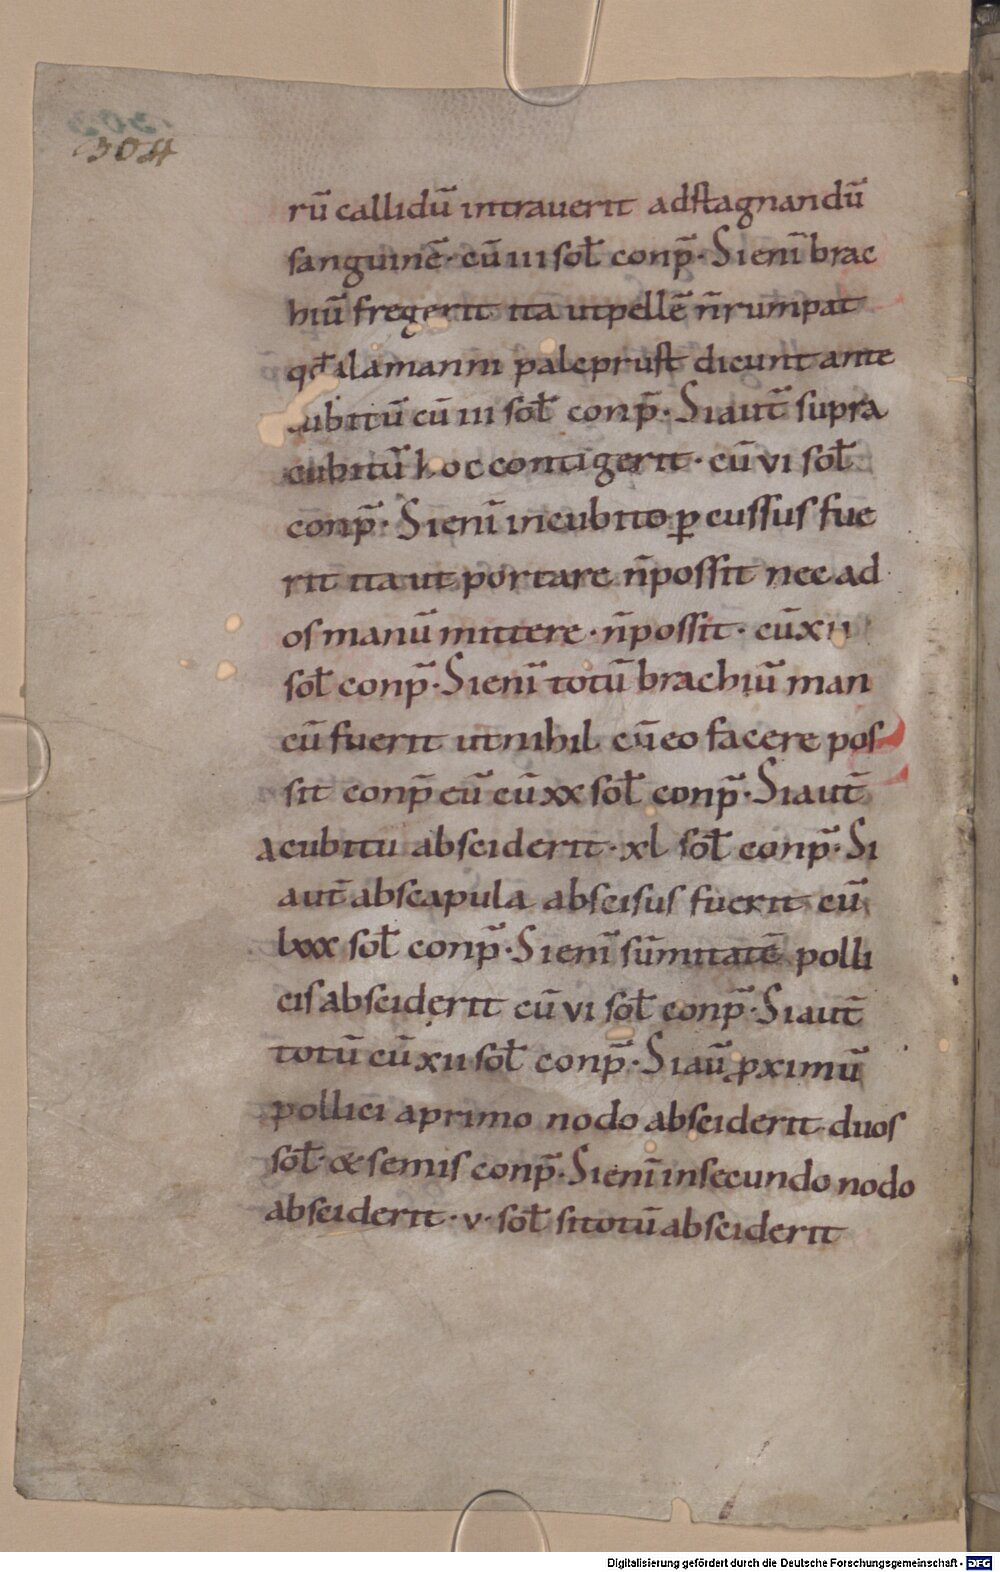 304
rū callidū intrauerit adstagnandū
sanguinē· cū iii sol̄ conp̄· Si enī brac
hiū fregerit ita ut pellē n̄ rumpat
qd̄ alamanni paleprust dicunt ante
cubitū cū iii sol̄ conp̄· Si aut̄ supra
cubitū hoc contigerit· cū vi sol̄
conp̄· Si enī incubito ꝑcussus fue
rit ita ut portare n̄ possit nec ad
os manū mittere· n̄ possit· cū xii
sol̄ conp̄· Si enī totū brachiū man
cū fuerit ut nihil cū eo facere pos
sit conp̄ cū cū xx sol̄ conp̄· Si aut̄
a cubitu absciderit· xl sol̄ conp̄· Si
aut̄ abscapula abscisus fuerit cū
lxxx sol̄ conp̄· Si enī sūmitatē polli
cis absciderit cū vi sol̄ conp̄· Si aut̄
totū cū xii sol̄ conp̄· Si aū ꝓximū
pollici a primo nodo absciderit duos
sol̄· & semis conp̄· Si enī in secundo nodo
absciderit· v· sol̄ si totū absciderit
Digitalisierung gefördert durch die Deutsche Forschungsgemeinschaft - DFG